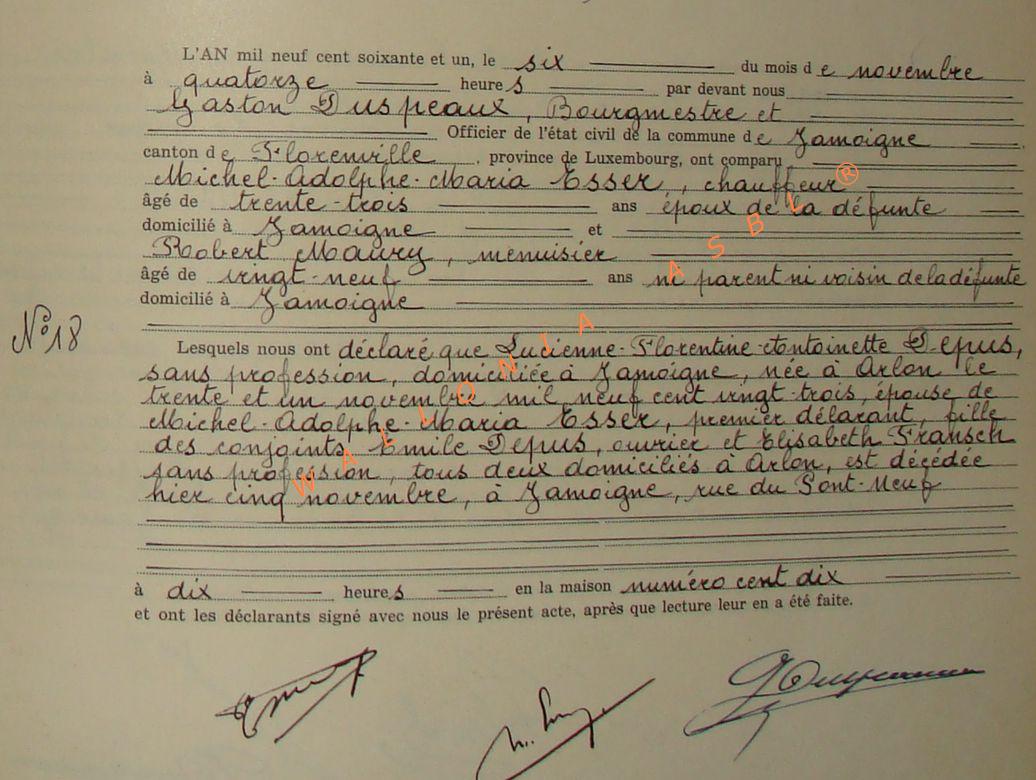 L'AN mil neuf cent soixante et un, le six du mois d e novembre
à quatorze heure s par devant nous
Gaston Duspeaux, Bourgmestre et
Officier de l'état civil de la commune d e Jamoigne
canton d e Florenville, province de Luxembourg, ont comparu
Michel-Adolphe-Maria Esser, chauffeur
âgé de trente-trois ans époux de la défunte
domicilié à Jamoigne et
Robert Maury, menuisier
âgé de vingt-neuf ans ni parent ni voisin de la défunte
domicilié à Jamoigne
N° 18
Lesquels nous ont déclaré que Lucienne-Florentine-Antoinette Depus,
sans profession, domiciliée à Jamoigne, née à Arlon le
trente et un novembre mil neuf cent vingt-trois, épouse de
Michel-Adolphe-Maria Esser, premier délarant, fille
des conjoints Emile Depus, ouvrier et Elisabeth Fransch
sans profession, tous deux domiciliés à Arlon, est décédée
hier cinq novembre, à Jamoigne, rue du Pont-Neuf
à dix heure s en la maison numéro cent dix
et ont les déclarants signé avec nous le présent acte, après que lecture leur en a été faite.
WALLONIA ASBL ®